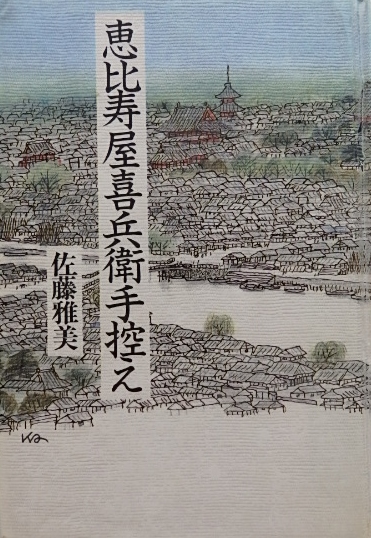 恵比寿屋喜兵衛手控え
佐藤雅美